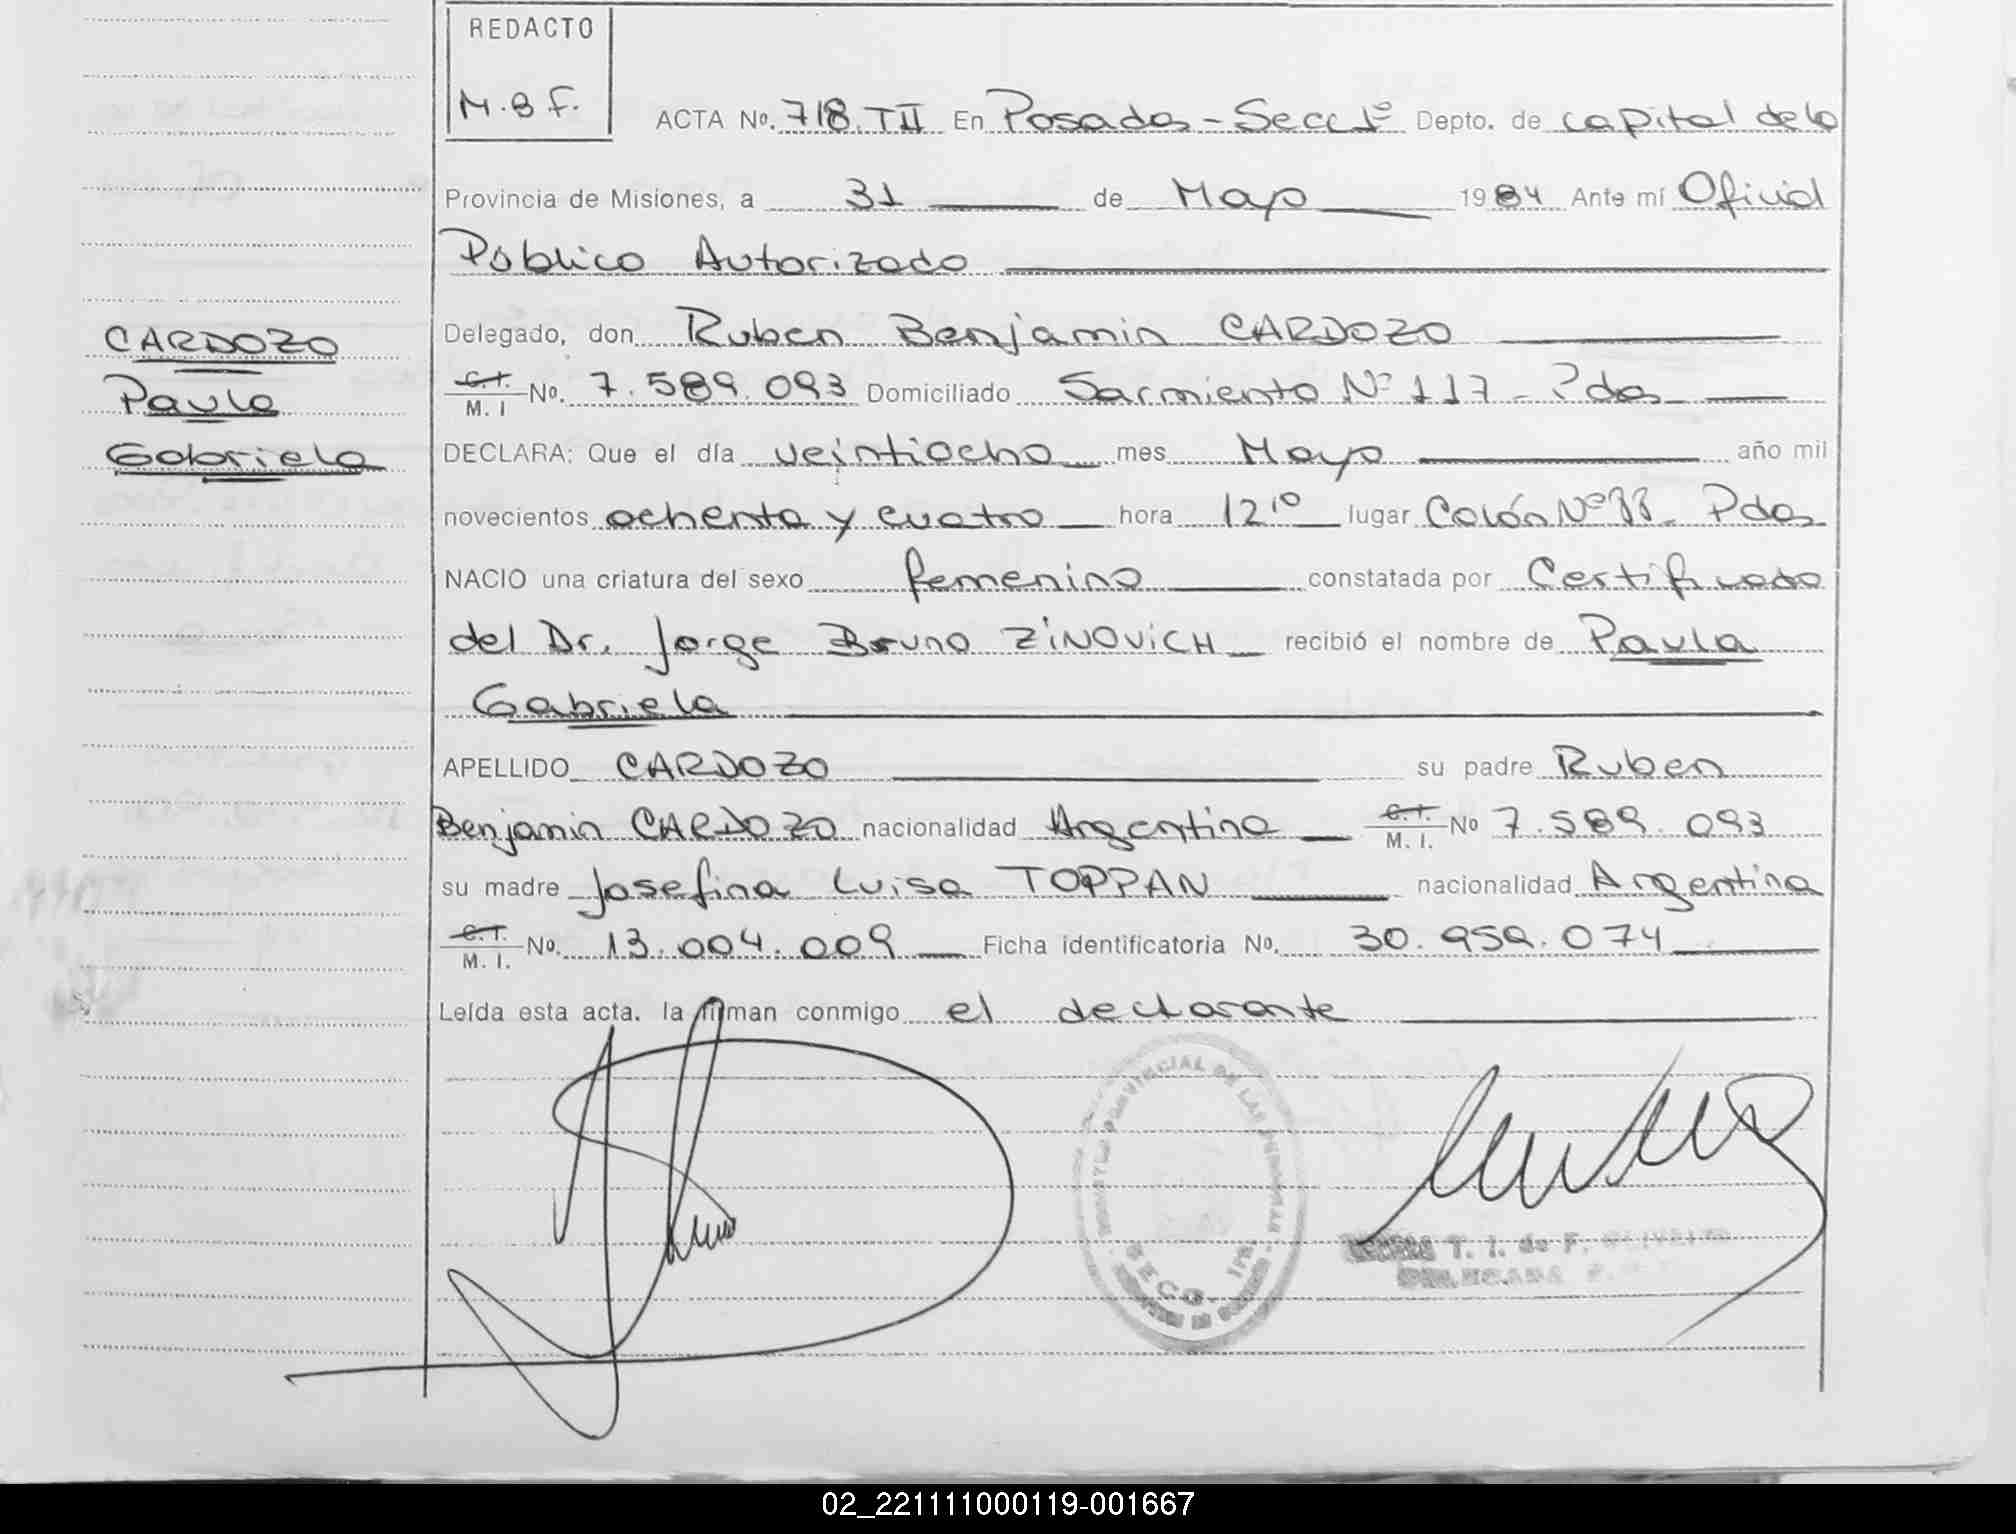 REDACTO
M.B F.
ACTA No. 718. TII En Posadas - Secc 1º Depto. de capital de la
Provincia de Misiones, a 31 de Mayo 1984 Ante mí Oficial
Público Autorizado
Delegado, don Ruben Benjamin CARDOZO
C.I. M. I No. 7.589.093 Domiciliado Sarmiento Nº 117 - Pdas
CARDOZO
Paula
Gabriela
DECLARA: Que el día veintiocho mes Mayo año mil
novecientos ochenta y cuatro hora 12¹⁰ lugar Colón Nº Pdas
NACIO una criatura del sexo femenino constatada por Certificado
del Dr. Jorge Bruno ZINOVICH recibió el nombre de Paula
Gabriela
APELLIDO CARDOZO su padre Ruben
Benjamin CARDOZO nacionalidad Argentina C.I. M. I. No 7.589.093
su madre Josefina Luisa TOPPAN nacionalidad Argentina
C.I. M. I. No. 13.004.009 Ficha identificatoria No. 30.959.074
Leída esta acta. la firman conmigo el declarante
PROVINCIAL DE LAS PERSONAS
SECC. 1ra.
T. I. de F. OLIVEIRA
DELEGADA
02_221111000119-001667